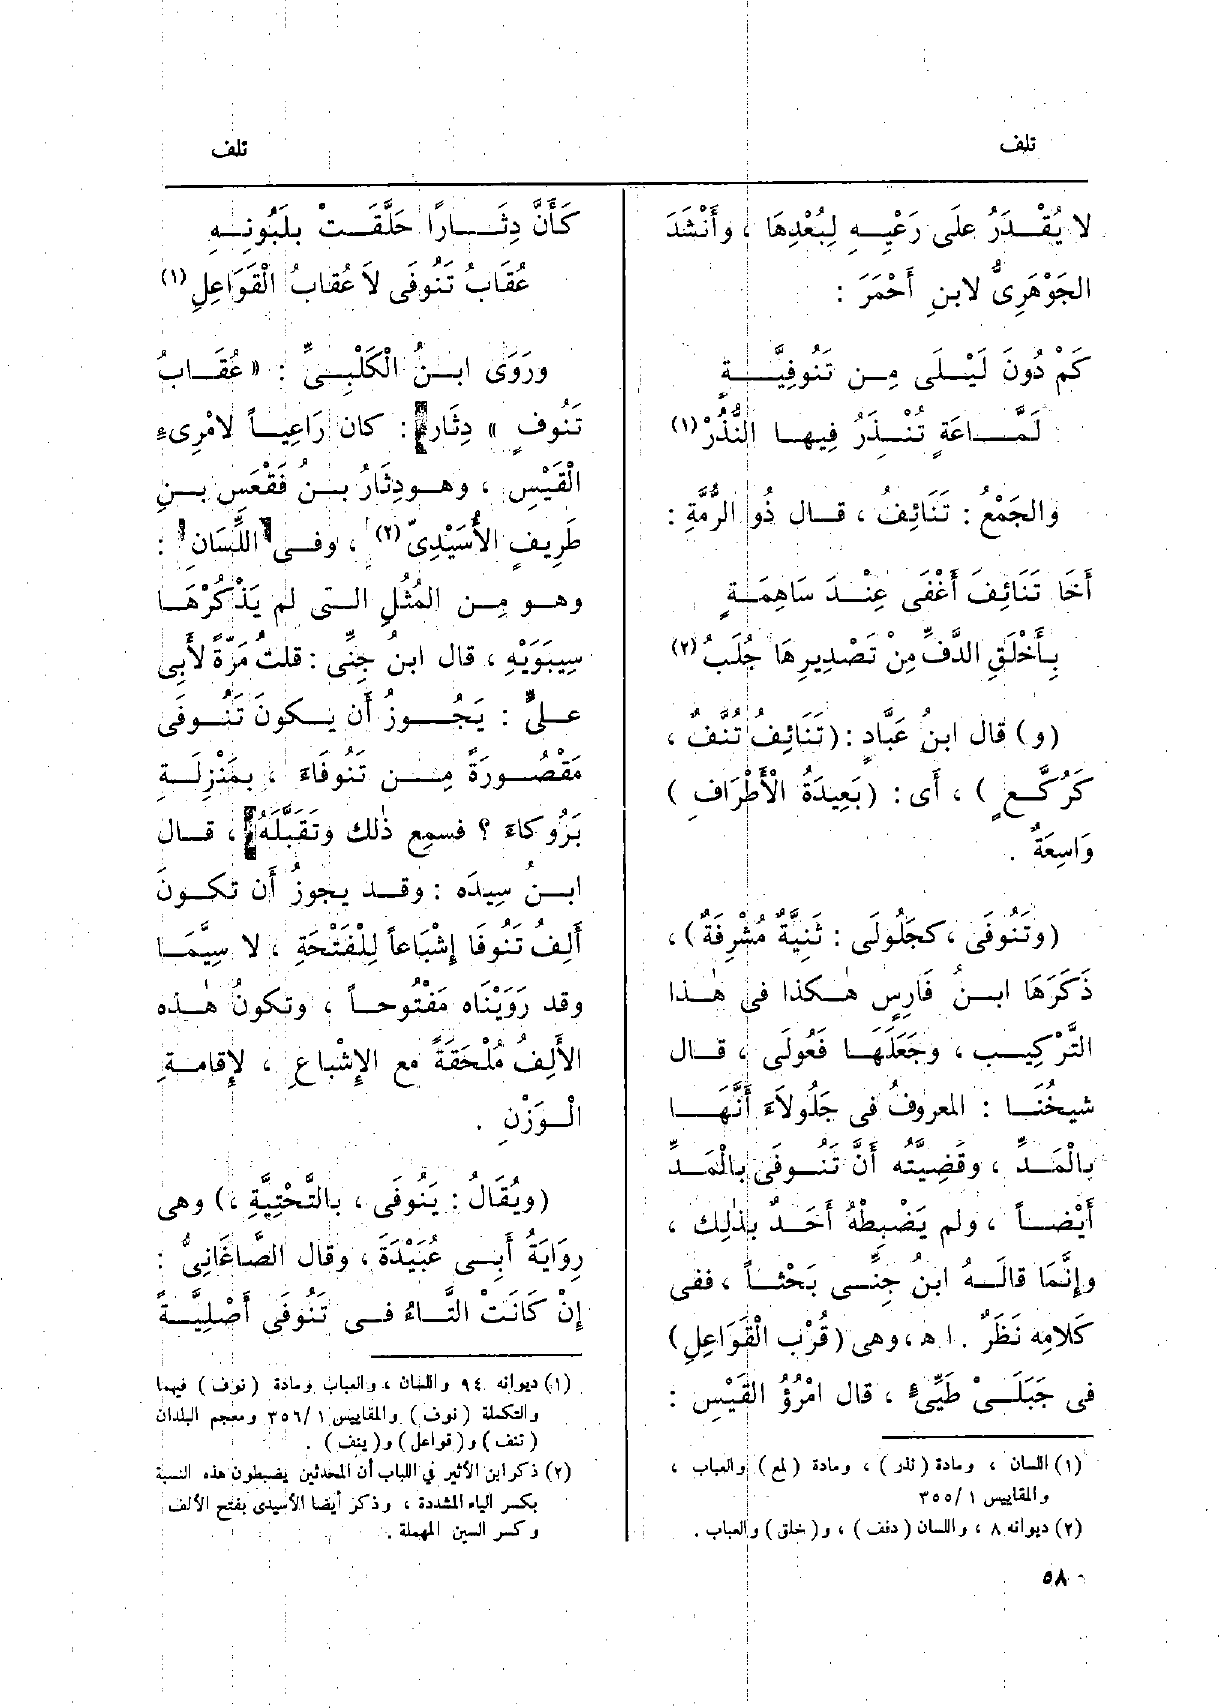 تلف
تلف
لا يُقْدَرُ عَلَى رَعْيِهِ لِبُعْدِهَا ، وأَنْشَدَ
الجَوْهَرِىُّ لابنِ أَحْمَرَ :
كَمْ دُونَ لَيْلَى مِن تَنُوفِيَّةٍ
لَمَّاعَةٍ تُنْذَرُ فِيهَا النُّذُرْ (١)
والجَمْعُ : تَنَائِفُ ، قال ذُو الرُّمَّةِ :
أَخَا تَنَائِفَ أَغْفَى عِنْدَ سَاهِمَةٍ
بِأَخْلَقِ الدَّفِّ مِنْ تَصْدِيرِهَا جُلَبُ (٢)
(و) قال ابنُ عَبَّادٍ : (تَنَائِفُ تُنَّفٌ ،
كَرُكَّعٍ ) ، أَى : (بَعِيدَةُ الْأَطْرَافِ )
وَاسِعَةٌ .
(وتَنُوفَى ، كجَلُولَى : ثَنِيَّةٌ مُشْرِفَةٌ) ،
ذَكَرَهَا ابنُ فَارِسٍ هٰكذا فى هٰذا
التَّرْكِيب ، وجَعَلَهَا فَعُولَى ، قال
شيخُنَا : المعروفُ فى جَلُولَاءَ أَنَّهَا
بِالْمَدِّ ، وقَضِيَّته أَنَّ تَنُوفَى بِالْمَدِّ
أَيْضاً ، ولم يَضْبِطْهُ أَحَدٌ بذٰلِك ،
وإِنَّمَا قالَهُ ابنُ جِنِّى بَحْثاً ، ففى
كَلامِه نَظَرٌ . ا ه ، وهى (قُرْب الْقَوَاعِلِ)
فى جَبَلَىْ طَيِّىءٍ ، قال امْرُؤُ القَيْسِ :
(١) اللسان ، ومادة (نذر) ، ومادة (لمع) والعباب ،
والمقاييس ١ /٣٥٥
(٢) ديوانه ٨ ، واللسان (دفف) ، و(خلق) والعباب .
كَأَنَّ دِثَاراً حَلَّقَتْ بِلَبُونِهِ
عُقَابُ تَنُوفَى لَا عُقابُ الْقَوَاعِلِ (١)
ورَوَى ابنُ الْكَلْبِىِّ : « عُقَابُ
تَنُوفٍ » دِثَار : كان رَاعِياً لامْرِىءِ
الْقَيْسِ ، وهو دِثَارُ بنُ فَقْعَسِ بنِ
طَرِيفٍ الأُسَيْدِىّ (٢) ، وفى اللِّسَانِ :
وهو مِن المُثُلِ التى لم يَذْكُرْهَا
سِيبَوَيْهِ ، قال ابنُ جِنِّى : قلتُ مَرّةً لأَبِى
علىٍّ : يَجُوزُ أَن يكونَ تَنُوفَى
مَقْصُورَةً مِن تَنُوفَاءَ ، بمَنْزِلَةِ
بَرُوكاءَ ؟ فسمِع ذٰلك وتَقَبَّلَهُ ، قال
ابنُ سِيدَه : وقد يجوزُ أَن تكونَ
أَلِفُ تَنُوفَا إِشْبَاعاً لِلْفَتْحَةِ ، لا سِيَّمَا
وقد رَوَيْنَاه مَفْتُوحاً ، وتكونُ هٰذه
الأَلِفُ مُلْحَقَةً مع الإِشْباعِ ، لإِقامةِ
الْوَزْنِ .
(ويُقَالُ : يَنُوفَى ، بالتَّحْتِيَّةِ ،) وهى
رِوَايَةُ أَبِى عُبَيْدَةَ ، وقال الصَّاغَانِىُّ :
إِنْ كَانَتْ التَّاءُ فى تَنُوفَى أَصْلِيَّةً
(١) ديوانه ٩٤ واللسان ، والعباب ومادة (نوف) فيهما
والتكملة (نوف) والمقاييس ١ /٣٥٦ ومعجم البلدان
(تنف) و(قواعل) و(ينف) .
(٢) ذكر ابن الأثير في اللباب أن المحدثين يضبطون هذه النسبة
بكسر الياء المشددة ، وذكر أيضا الأسيدى بفتح الألف
وكسر السين المهملة .
٥٨